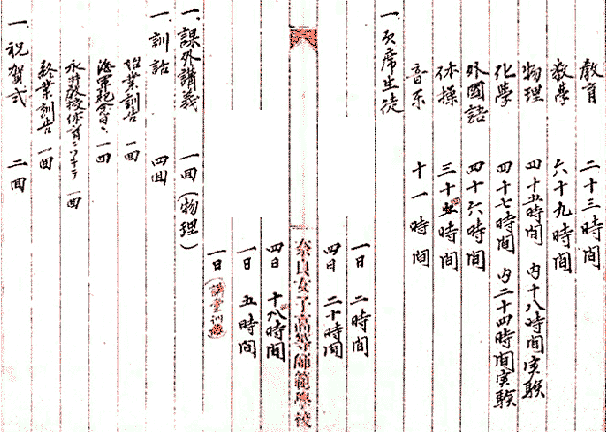 教育　二十三時間
数學　六十九時間
物理　四十五時間　内十八時間実験
化學　四十七時間　内二十四時間実験
外國語　四十六時間
体操　三十五時間
音楽　十一時間
一、欠席生徒
一日　二時間
四日　二十時間
奈良女子高等師範學校
四日　十八時間
一日　五時間
一日（講堂訓話）
一、課外講義　一回（物理）
一、訓話　四回
始業訓告　一回
海軍紀念日、一回
水井教授体育ニツキテ　一回
終業訓告　一回
一、祝賀式　二回